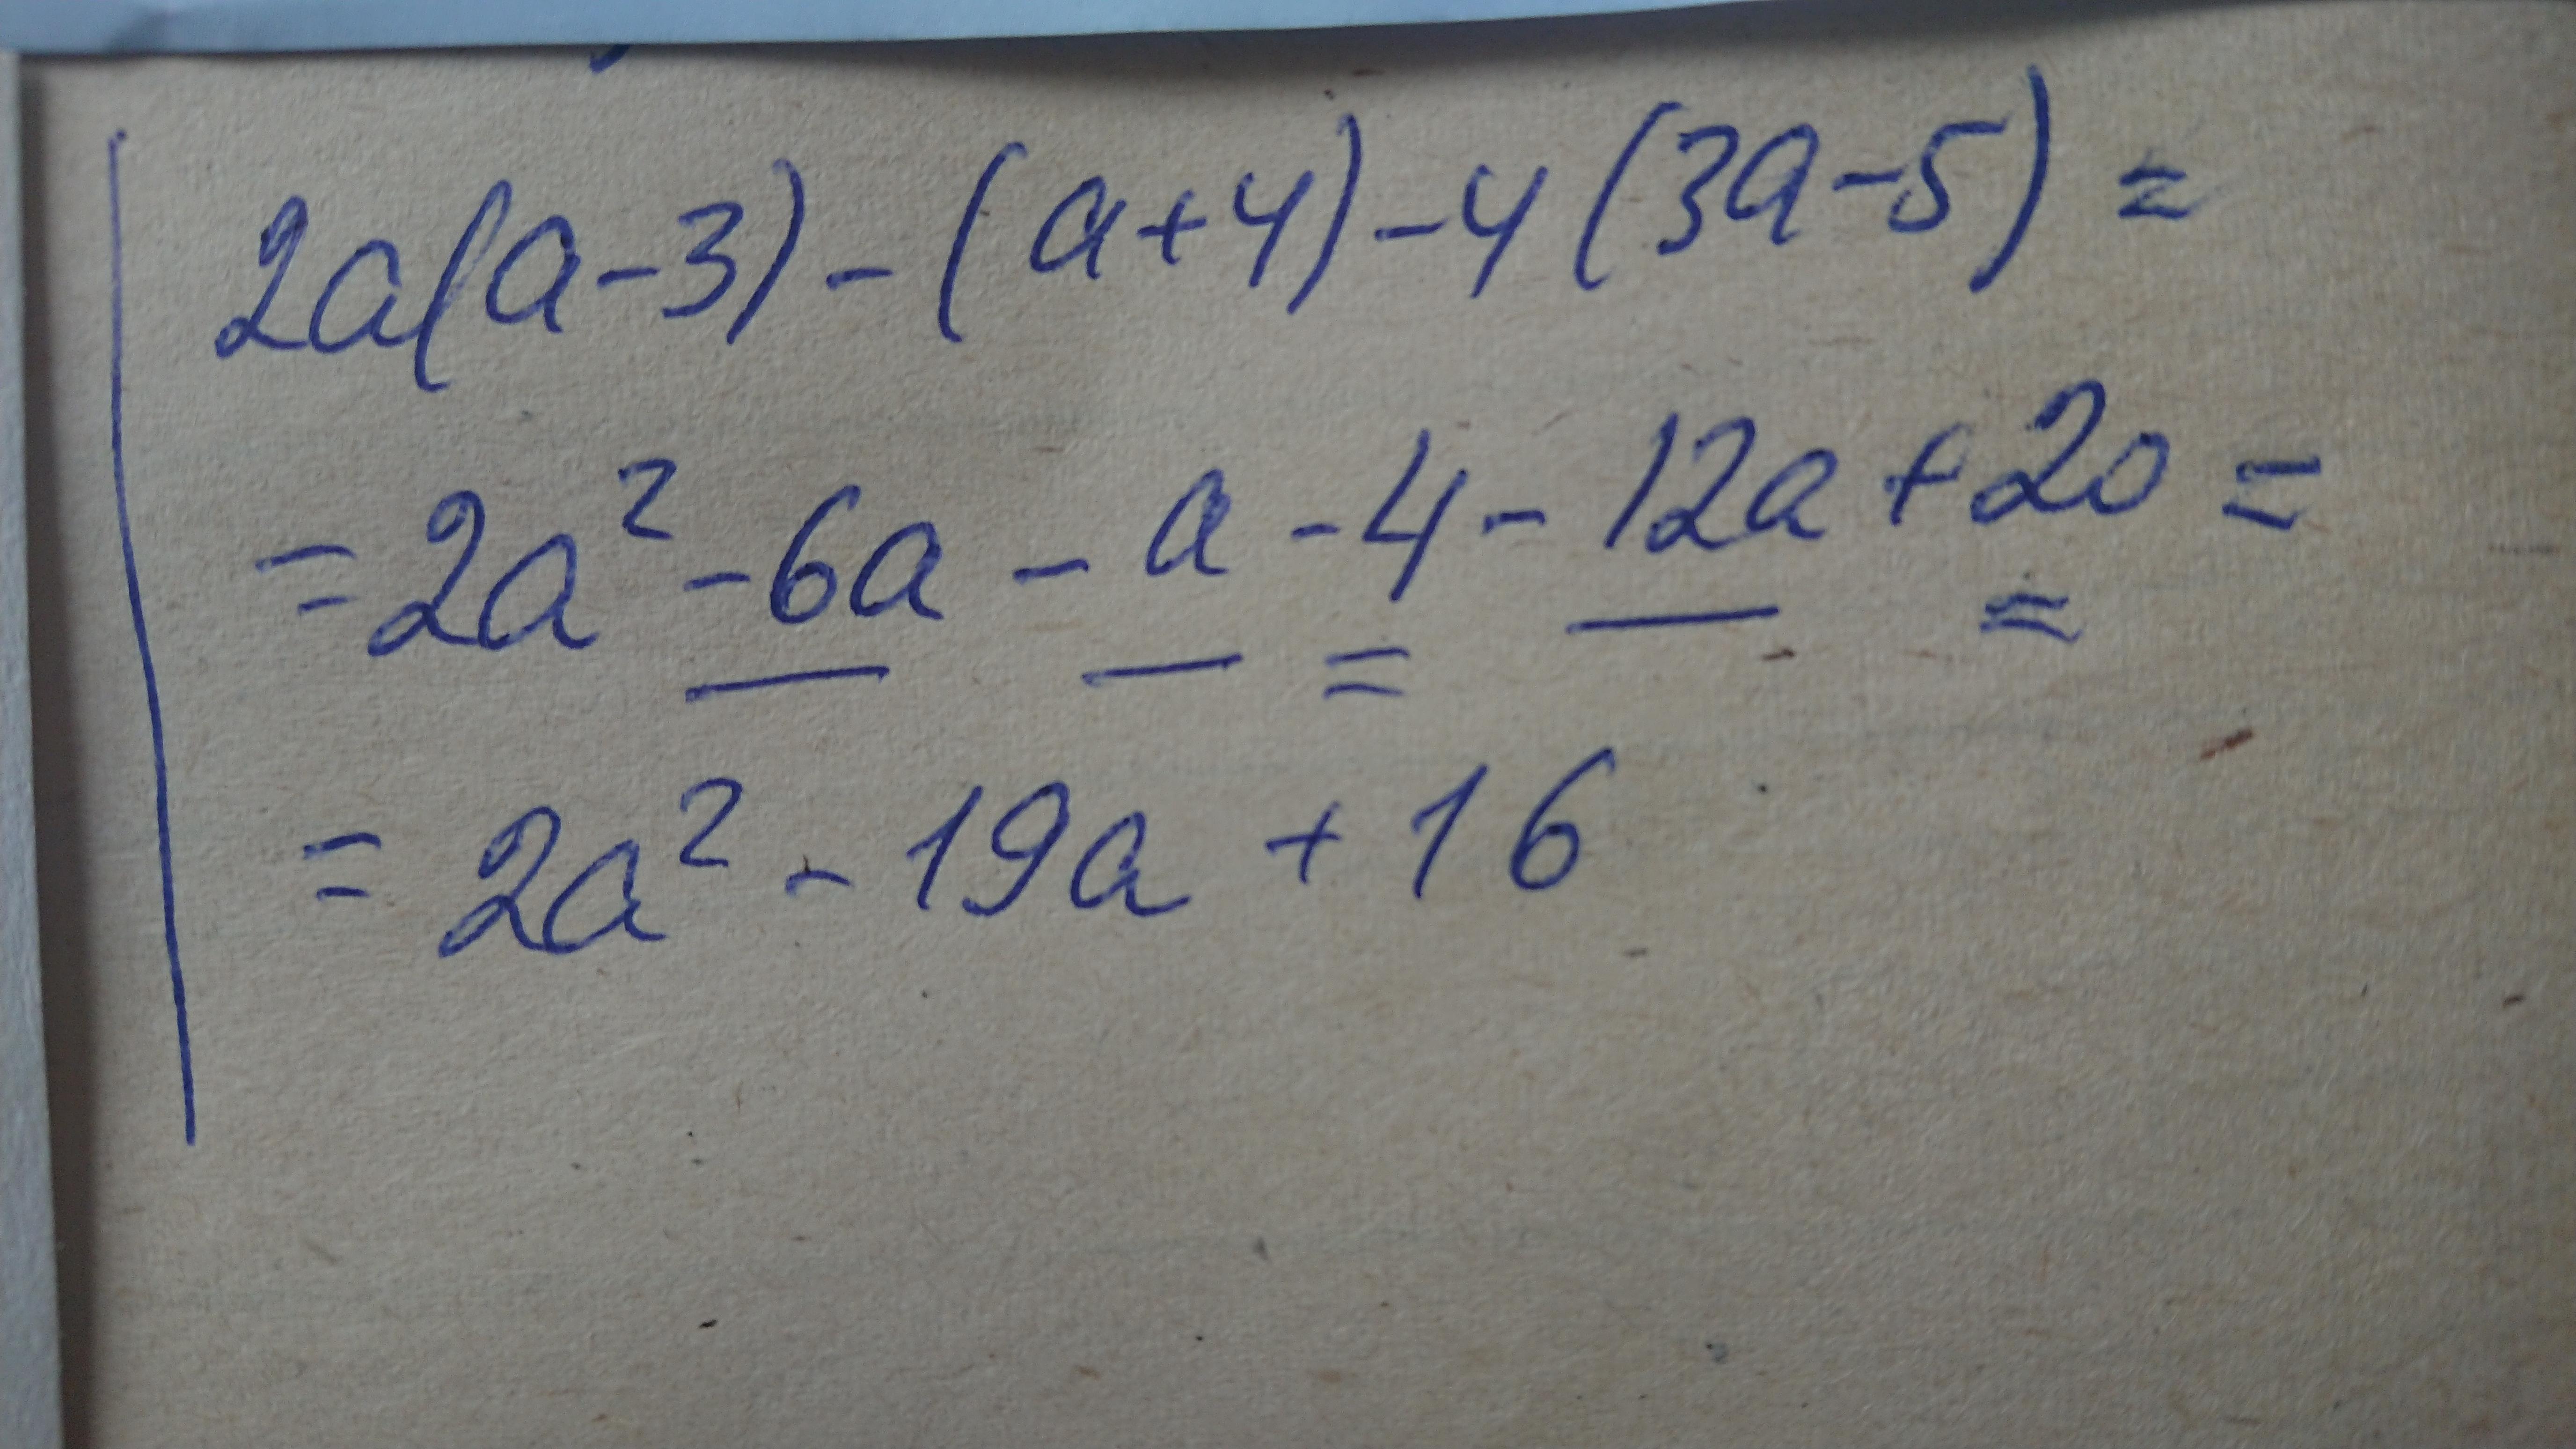 2a(a-3)-(a+4)-4(3a-5)=
=2a²-6a-a-4-12a+20=
=2a²-19a+16